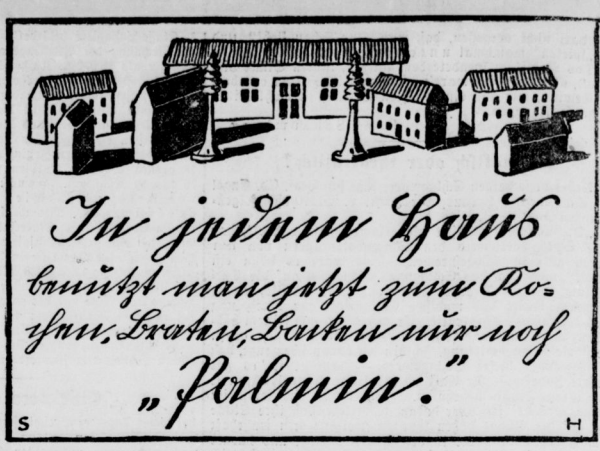 In jedem Haus
benutzt man jetzt zum Ko=
chen, Braten, Backen nur noch
„Palmin.”
S H